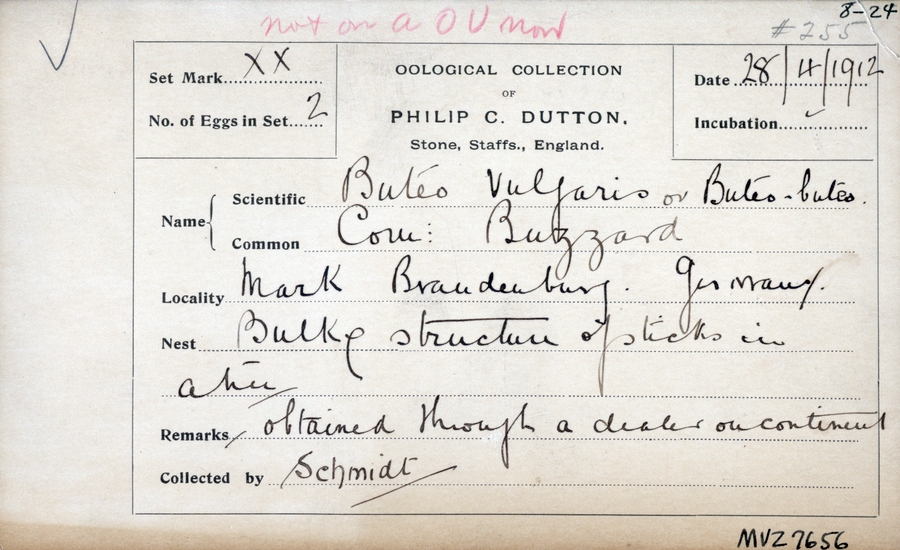 8-24
not on a OU now
# 255
Set Mark XX
No. of Eggs in Set 2
OOLOGICAL COLLECTION
OF
PHILIP C. DUTTON,
Stone, Staffs., England.
Date 28/4/1912
Incubation ✓
Name Scientific Buteo Vulgaris or Buteo-buteo.
Common Com: Buzzard
Locality Mark Brandenburg. Germany.
Nest Bulky structure of sticks in
a tree
Remarks obtained through a dealer on continent
Collected by Schmidt
MVZ 7656